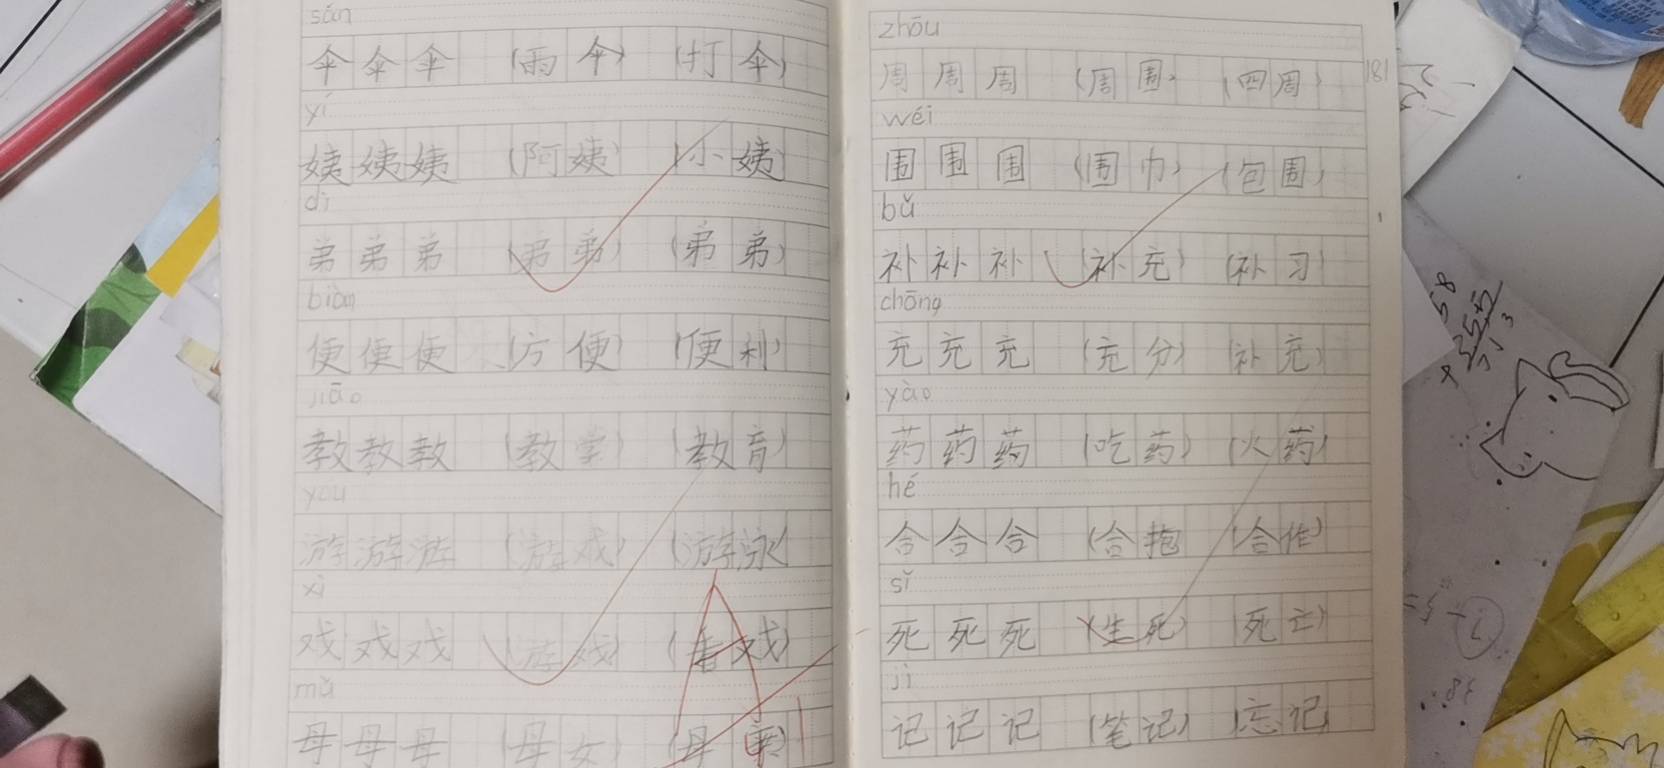 sǎn
伞伞伞 (雨伞) (打伞)
yí
姨姨姨 (阿姨) (小姨)
dì
弟弟弟 (弟弟) (弟弟)
biàn
便便便 (方便) (便利)
jiāo
教教教 (教学) (教育)
you
游游游 (游戏) (游泳)
xì
戏戏戏 (游戏) (看戏)
mǔ
母母母 (母女) (母亲)
A
zhōu
周周周 (周围) (四周)
wéi
围围围 (围巾) (包围)
bǔ
补补补 (补充) (补习)
chōng
充充充 (充分) (补充)
yào
药药药 (吃药) (火药)
hé
合合合 (合抱) (合作)
sǐ
死死死 (生死) (死亡)
jì
记记记 (笔记) (忘记)